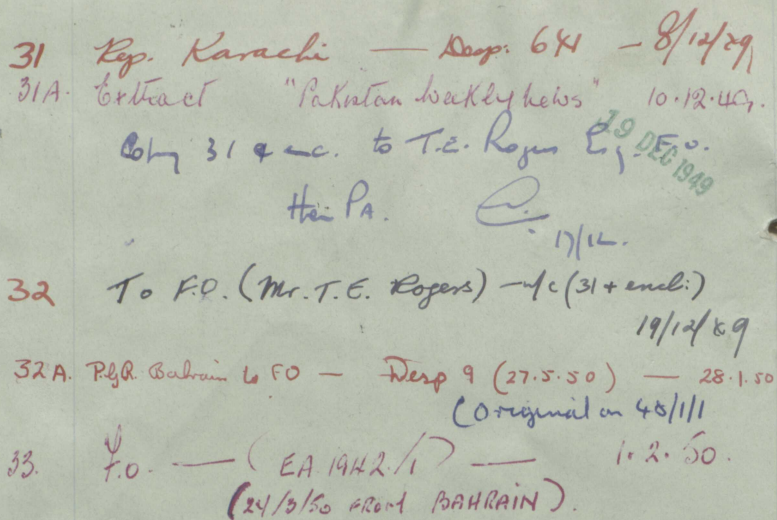 31 Rep. Karachi — Desp. 641 — 8/12/49
31A. Extract "Pakistan Weekly News" 10.12.49.
Copy 31 & enc. to T.E. Rogers Esq. F.O.
19 DEC 1949
PA.
17/12.
32 To F.O. (Mr. T.E. Rogers) — w/c (31 + encl:)
19/12/49
32A. P.G.R. Bahrain to FO — Desp 9 (27.5.50) — 28.1.50
(Original on 48/1/1
33. F.O. — (EA 1942/1) — 1.2.50.
(24/3/50 FROM BAHRAIN).